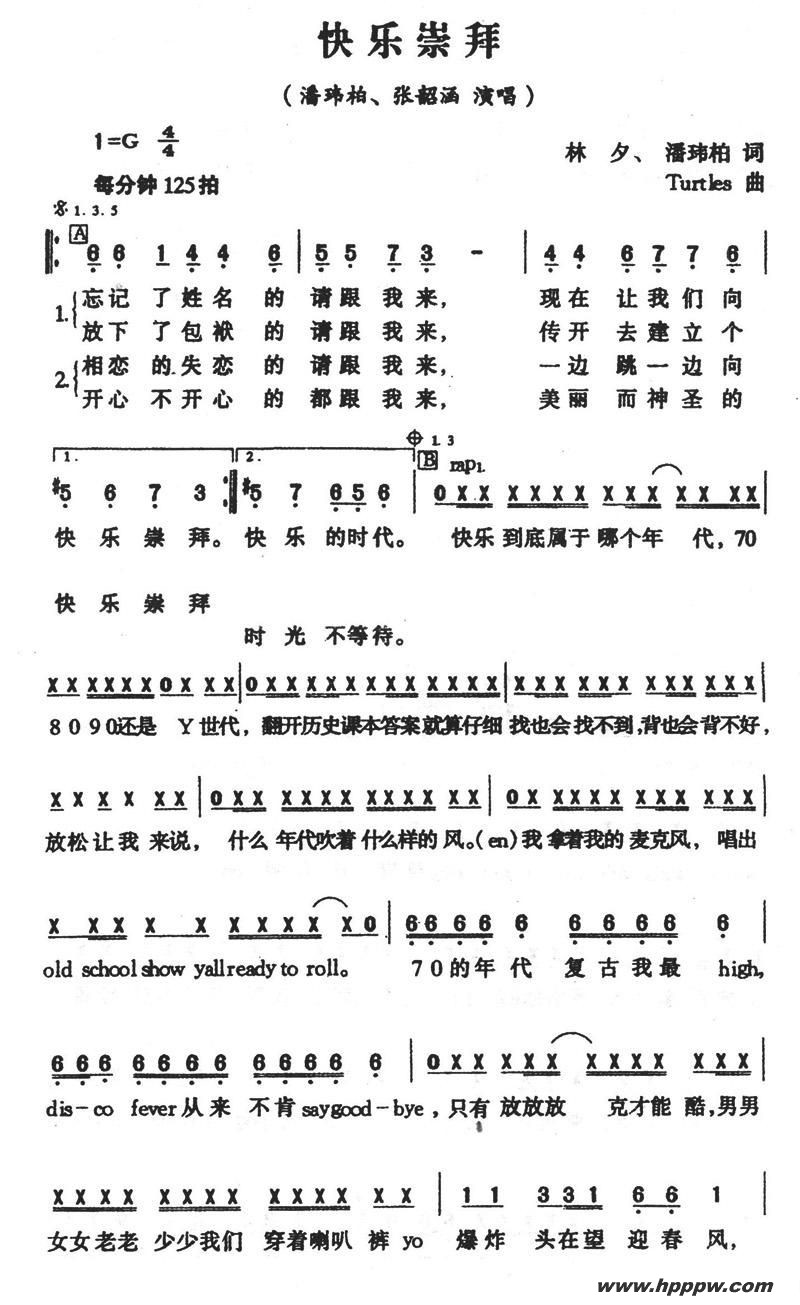 快乐崇拜
（潘玮柏、张韶涵 演唱）
1=G 4/4
林 夕、 潘玮柏 词
每分钟 125 拍
Turtles 曲
1. 3. 5
A
6 6 1 4 4 6 | 5 5 7 3 - | 4 4 6 7 7 6 |
1. 忘记 了姓名 的请跟 我来， 现在 让我们向
放下 了包袱 的请跟 我来， 传开 去建立个
2. 相恋 的失恋 的请跟 我来， 一边 跳一边向
开心 不开心 的都跟 我来， 美丽 而神圣的
1. 2. 1. 3
B rap1.
#5 6 7 3 :| #5 7 6 5 6 | 0 X X X X X X X X X X X X X X
快 乐 崇 拜。快 乐 的时代。 快乐 到底属于 哪个年 代，70
快 乐 崇 拜
时 光 不等待。
X X X X X X 0 X X X | 0 X X X X X X X X X X X X X X | X X X X X X X X X X X X X X |
8 0 9 0还是 Y 世代， 翻开历史课本答案就算仔细 找也会找不到，背也会背不好，
X X X X X X | 0 X X X X X X X X X X X X | 0 X X X X X X X X X X X X
放松让我 来说， 什么 年代吹着 什么样的 风。(en)我 拿着我的 麦克风， 唱出
X X X X X X X X X X X 0 | 6 6 6 6 6 6 6 6 6 6 |
old school show yall ready to roll。 7 0 的年 代 复古 我最 high,
6 6 6 6 6 6 6 6 6 6 6 6 | 0 X X X X X X X X X X X X X
dis-co fever从来 不肯 say good-bye，只有 放放放 克才能 酷，男男
X X X X X X X X X X X X X X | 1 1 3 3 1 6 6 1
女女老老 少少我们 穿着喇叭 裤 yo 爆炸 头在望 迎 春 风，
www.hpppw.com